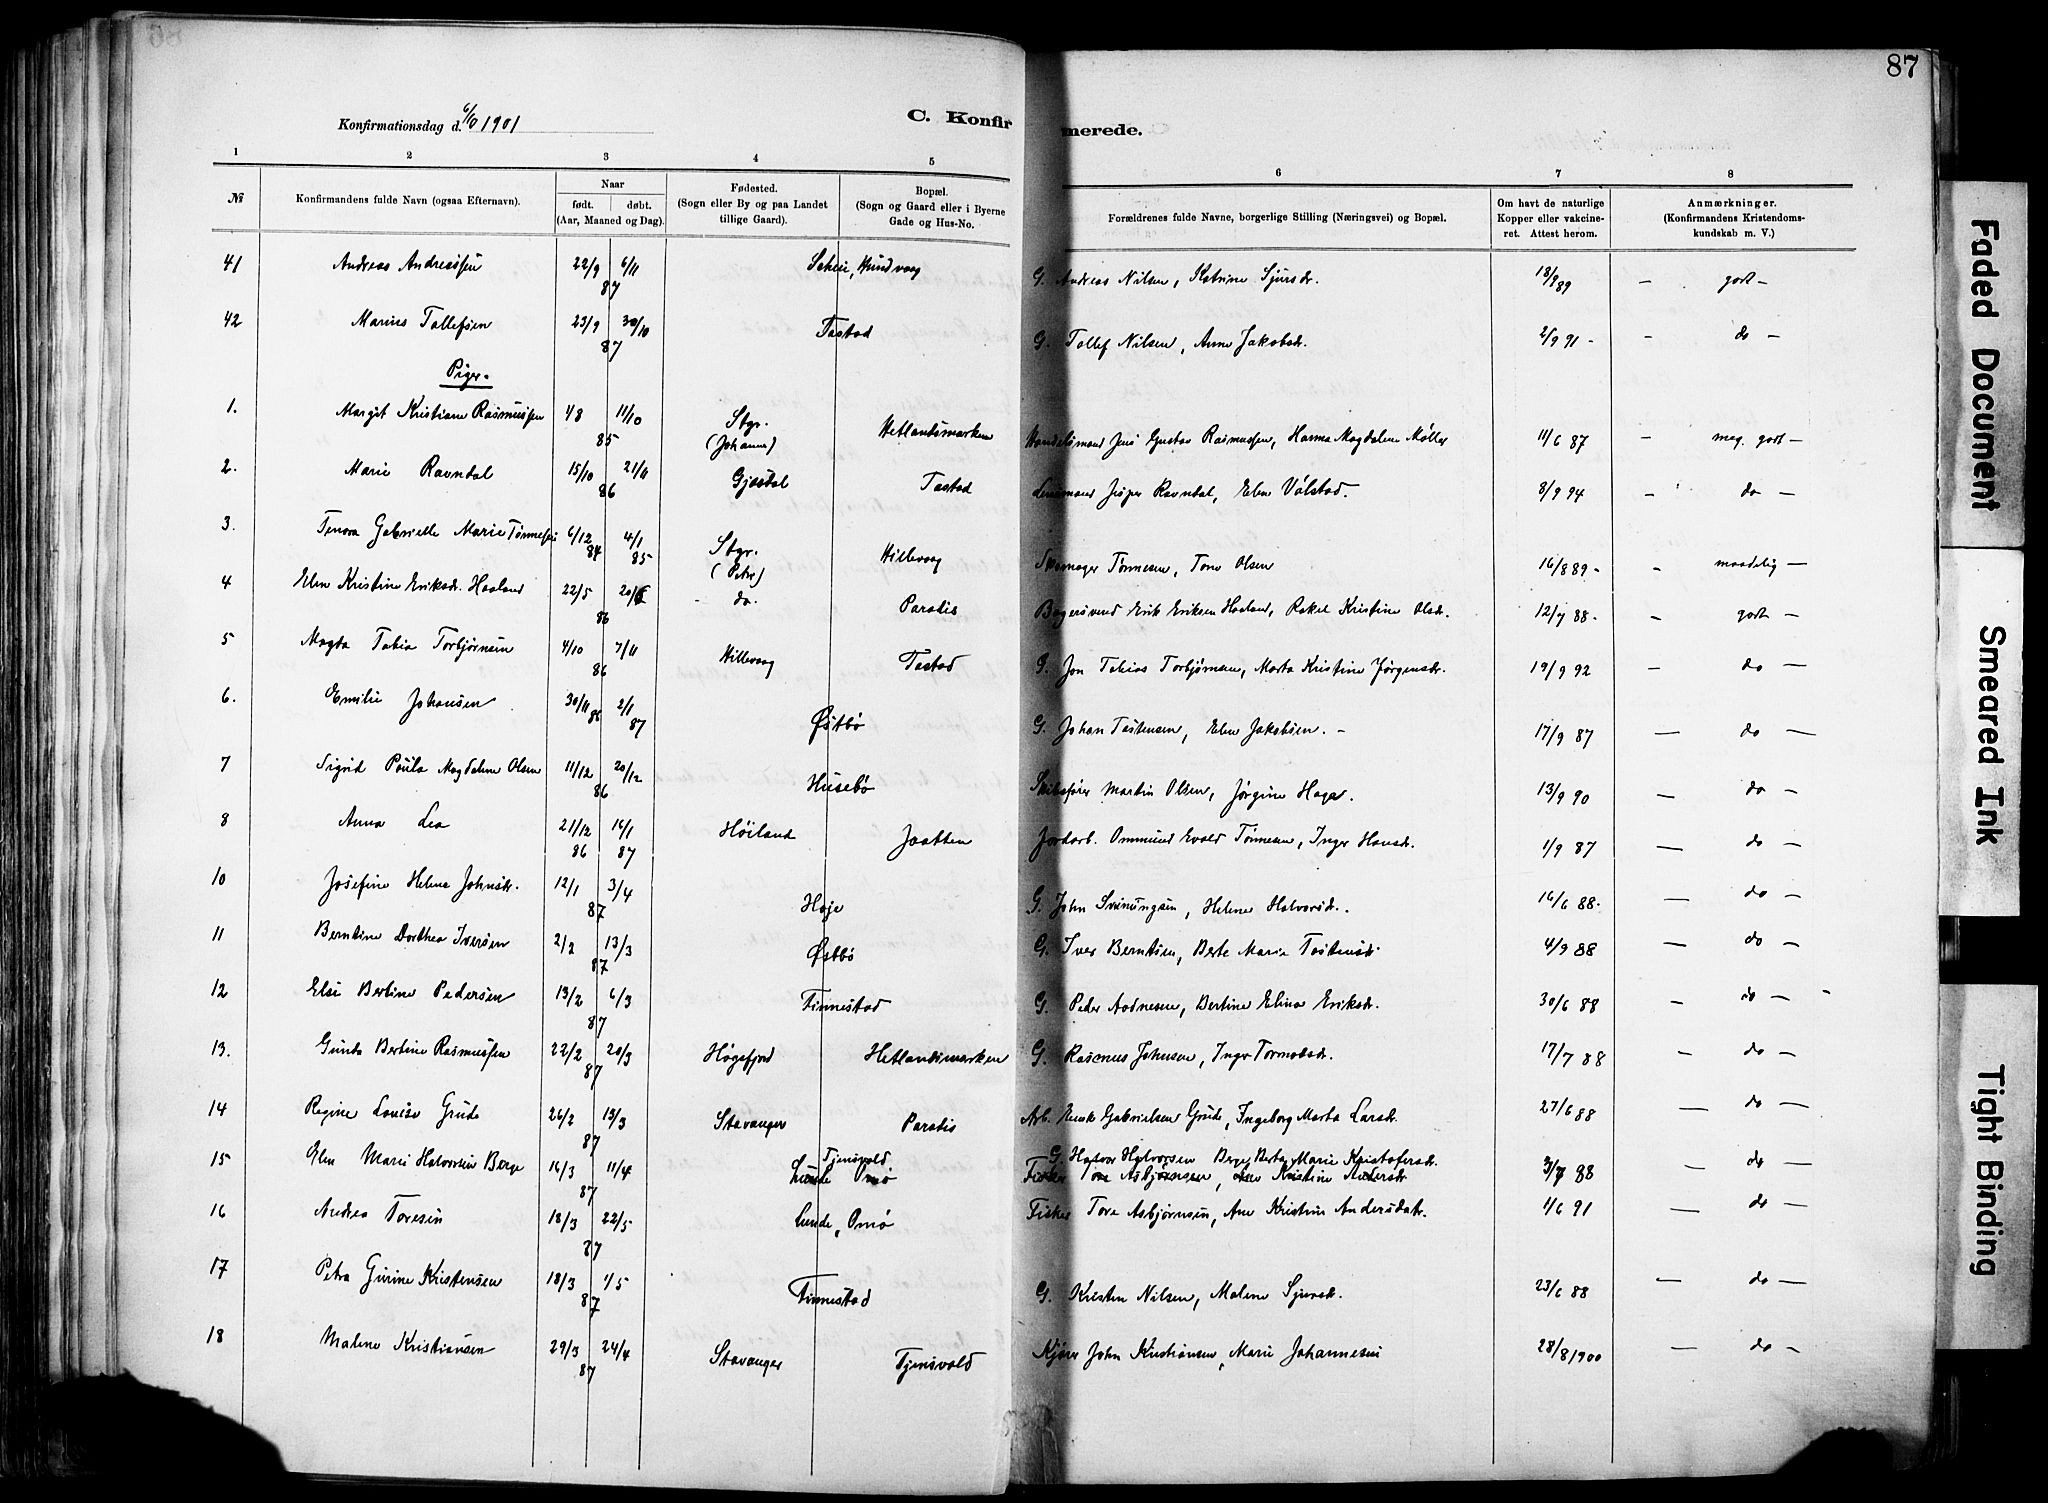 87
Konfirmationsdag d. 6/10 1901
C. Konfirmerede.
1 2 3 4 5 6 7 8
№ Konfirmandens fulde Navn (ogsaa Efternavn). Naar født. døbt. (Aar, Maaned og Dag). Fødested. (Sogn eller By og paa Landet tillige Gaard). Bopæl. (Sogn og Gaard eller i Byerne Gade og Hus-No. Forældrenes fulde Navne, borgerlige Stilling (Næringsvei) og Bopæl. Om havt de naturlige Kopper eller vakcineret. Attest herom. Anmærkninger. (Konfirmandens Kristendomskundskab m. V.)
41 Andreas Andreassen 22/9 6/11 87 Hundvaag G. Andreas Nilsen, Katrine Sjursdr. 18/9 89 — godt —
42 Marius Tollefsen 23/9 30/10 87 Tastad G. Tollef Nilsen, Anne Jakobsdr. 2/9 91 - - do —
Piger.
1. Margit Kristiane Rasmussen 4/8 11/10 85 Stgr. (Johannes) Hetlandsmarken Handelsmand Jens Gustav Rasmussen, Hanna Magdalene Møller 11/6 87 — meg. godt —
2. Marie Ravndal 15/10 21/11 86 Gjæsdal Tastad Lensmand Jesper Ravndal, Elen Válstad. 8/9 94 — do —
3. Tenora Gabrielle Marie Tønnesen 6/12 84 4/1 85 Stgr. (Petri) Hillevaag Skomager Tønnesen, Tone Olsen 16/8 89 - - maadelig —
4 Elen Kristine Eriksdr. Haaland 22/5 20/6 86 - do. Paradis Bagersvend Erik Eriksen Haaland, Rakel Kristine Olsdr. 12/7 88 - — godt —
5 Magda Tobia Torbjørnsen 4/10 7/11 86 Hillevaag Tastad G. Jon Tobias Torbjørnsen, Marta Kristine Jørgensdr. 19/9 92 — do —
6. Emilie Johansen 30/11 86 2/1 87 Østbø G. Johan Tostensen, Elen Jakobsen. - 17/9 87 — do —
7 Sigrid Paula Magdalene Olsen 11/12 20/12 86 Husebø Skibsfører Martin Olsen, Jørgine Hager. 13/9 90 — do —
8 Anna Lea 21/12 86 16/1 87 Høiland Jaatten Jordarb. Ommund Evald Tønnesen, Inger Hansdr. 1/9 87 — do —
10 Josefine Helene Johnsdr. 12/1 3/4 87 Høje G. John Svenungsen, Helene Halvorsdr. 16/6 88. — do —
11 Berntine Dorthea Iversen 2/2 13/3 87 Østbø G. Iver Berntsen, Berte Marie Tostensdr 4/9 88 — do —
12 Elsi Bertine Pedersen 13/2 6/3 87 Finnestad G. Peder Aadnesen, Bertine Elina Eriksdr. 30/6 88 — do — -
13. Gunda Bertine Rasmussen 22/2 20/3 87 Høgsfjord Hetlandsmarken G. Rasmus Johnsen, Inger Tormodsdr. 17/7 88 — do —
14 Regine Lovise Grude 26/2 13/3 87 Stavanger Paradis Arb. Enok Gabrielsen Grude, Ingeborg Marta Larsdr. 27/6 88 — do —
15 Elen Marie Halvorsen Berge 16/3 11/4 87 Tjensvold Lunde Omø G. Halvor Halvorsen Berge, Berta Marie Kristofersdr. Fisker Tore Asbjørnsen, Ane Kristine Andersdr 3/7 88 — do —
16 Andrea Toresen 18/3 22/5 87 Lunde, Omø Fisker Tore Asbjørnsen, Ane Kristine Andersdatr. 1/6 91 — do —
17 Petra Gurine Kristensen 18/3 1/5 87 Finnestad G. Kristen Nilsen, Malene Sjursdr. 23/6 88 — do —
18 Malene Kristiansen 29/3 24/4 87 Stavanger Tjensvold Kjører John Kristiansen, Marie Johannesen 28/8 1900 — do —
Faded Document
Smeared Ink
Tight Binding